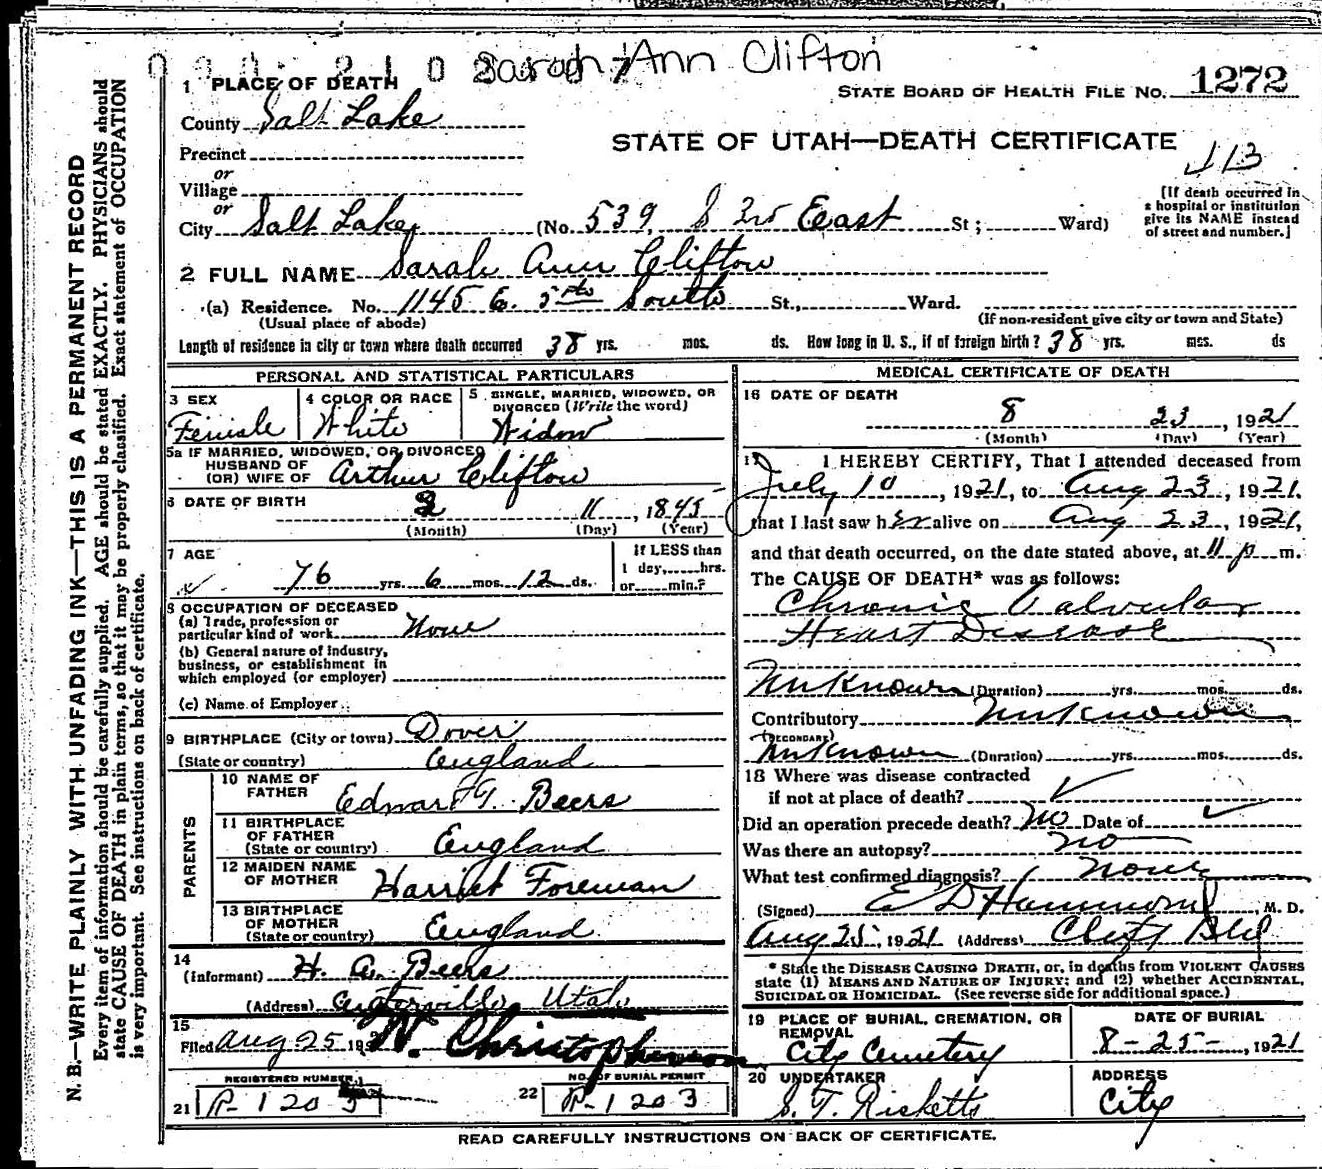 Sarah Ann Clifton
1 PLACE OF DEATH
STATE BOARD OF HEALTH FILE NO. 1272
County Salt Lake
STATE OF UTAH—DEATH CERTIFICATE
113
Precinct
or
Village
or
City Salt Lake (No. 539 S 3rd East St; Ward)
[If death occurred in
a hospital or institution
give its NAME instead
of street and number.]
2 FULL NAME Sarah Ann Clifton
(a) Residence. No. 1145 E. 5th South St., Ward.
(Usual place of abode) (If non-resident give city or town and State)
Length of residence in city or town where death occurred 38 yrs. mos. ds. How long in U. S., if of foreign birth? 38 yrs. mos. ds
PERSONAL AND STATISTICAL PARTICULARS
3 SEX
Female
4 COLOR OR RACE
White
5 SINGLE, MARRIED, WIDOWED, OR
DIVORCED (Write the word)
Widow
5a IF MARRIED, WIDOWED, OR DIVORCED
HUSBAND OF
(OR) WIFE OF Arthur Clifton
6 DATE OF BIRTH 2 11, 1845
(Month) (Day) (Year)
7 AGE
76 yrs. 6 mos. 12 ds.
If LESS than
1 day, hrs.
or min.?
8 OCCUPATION OF DECEASED
(a) Trade, profession or
particular kind of work None
(b) General nature of industry,
business, or establishment in
which employed (or employer)
(c) Name of Employer
9 BIRTHPLACE (City or town) Dover
(State or country) England
PARENTS
10 NAME OF
FATHER Edward T. Beers
11 BIRTHPLACE
OF FATHER
(State or country) England
12 MAIDEN NAME
OF MOTHER Harriet Foreman
13 BIRTHPLACE
OF MOTHER
(State or country) England
14
(Informant) H. A. Beers
(Address) Centerville, Utah
15
Filed Aug 25 192 W. Christopherson
REGISTERED NUMBER
21 P-1203
NO. OF BURIAL PERMIT
22 P-1203
MEDICAL CERTIFICATE OF DEATH
16 DATE OF DEATH
8 23, 1921
(Month) (Day) (Year)
17 I HEREBY CERTIFY, That I attended deceased from
July 10, 1921, to Aug 23, 1921.
that I last saw her alive on Aug 23, 1921,
and that death occurred, on the date stated above, at 11 p m.
The CAUSE OF DEATH* was as follows:
Chronic Valvular
Heart Disease
Unknown (Duration) yrs. mos. ds.
Contributory Unknown
(SECONDARY)
Unknown (Duration) yrs. mos. ds.
18 Where was disease contracted
if not at place of death?
Did an operation precede death? No Date of
Was there an autopsy? no
What test confirmed diagnosis? None
(Signed) E D Hammond, M. D.
Aug 25, 1921 (Address) Clift Bld
* State the DISEASE CAUSING DEATH, or, in deaths from VIOLENT CAUSES
state (1) MEANS AND NATURE OF INJURY; and (2) whether ACCIDENTAL,
SUICIDAL OR HOMICIDAL. (See reverse side for additional space.)
19 PLACE OF BURIAL, CREMATION, OR
REMOVAL
City Cemetery
DATE OF BURIAL
8-25-, 1921
20 UNDERTAKER
S. T. Ricketts
ADDRESS
City
READ CAREFULLY INSTRUCTIONS ON BACK OF CERTIFICATE.
N. B.—WRITE PLAINLY WITH UNFADING INK—THIS IS A PERMANENT RECORD
Every item of information should be carefully supplied. AGE should be stated EXACTLY. PHYSICIANS should
state CAUSE OF DEATH in plain terms, so that it may be properly classified. Exact statement of OCCUPATION
is very important. See instructions on back of certificate.